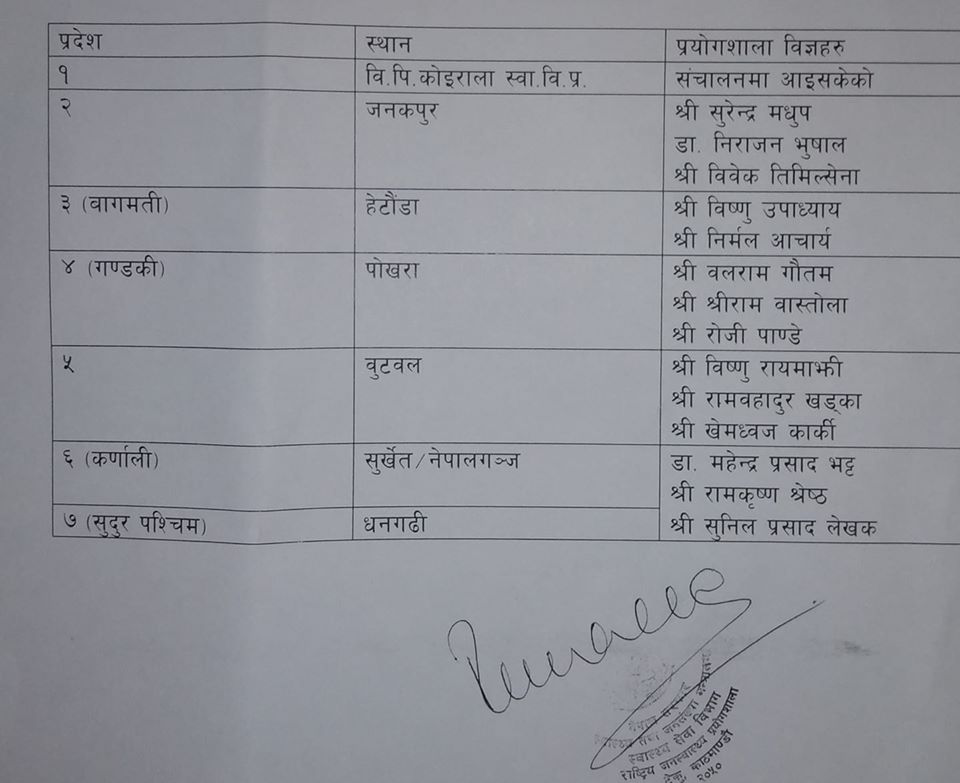 प्रदेश स्थान प्रयोगशाला विज्ञहरु
१ वि.पि.कोइराला स्वा.वि.प्र. संचालनमा आइसकेको
२ जनकपुर श्री सुरेन्द्र मधुप
डा. निराजन भुषाल
श्री विवेक तिमिल्सेना
३ (वागमती) हेटौंडा श्री विष्णु उपाध्याय
श्री निर्मल आचार्य
४ (गण्डकी) पोखरा श्री वलराम गौतम
श्री श्रीराम वास्तोला
श्री रोजी पाण्डे
५ वुटवल श्री विष्णु रायमाझी
श्री रामवहादुर खड्का
श्री खेमध्वज कार्की
६ (कर्णाली) सुर्खेत/नेपालगञ्ज डा. महेन्द्र प्रसाद भट्ट
श्री रामकृष्ण श्रेष्ठ
७ (सुदुर पश्चिम) धनगढी श्री सुनिल प्रसाद लेखक
स्वास्थ्य सेवा विभाग
राष्ट्रिय जनस्वास्थ्य प्रयोगशाला
काठमाण्डौ
२०५०